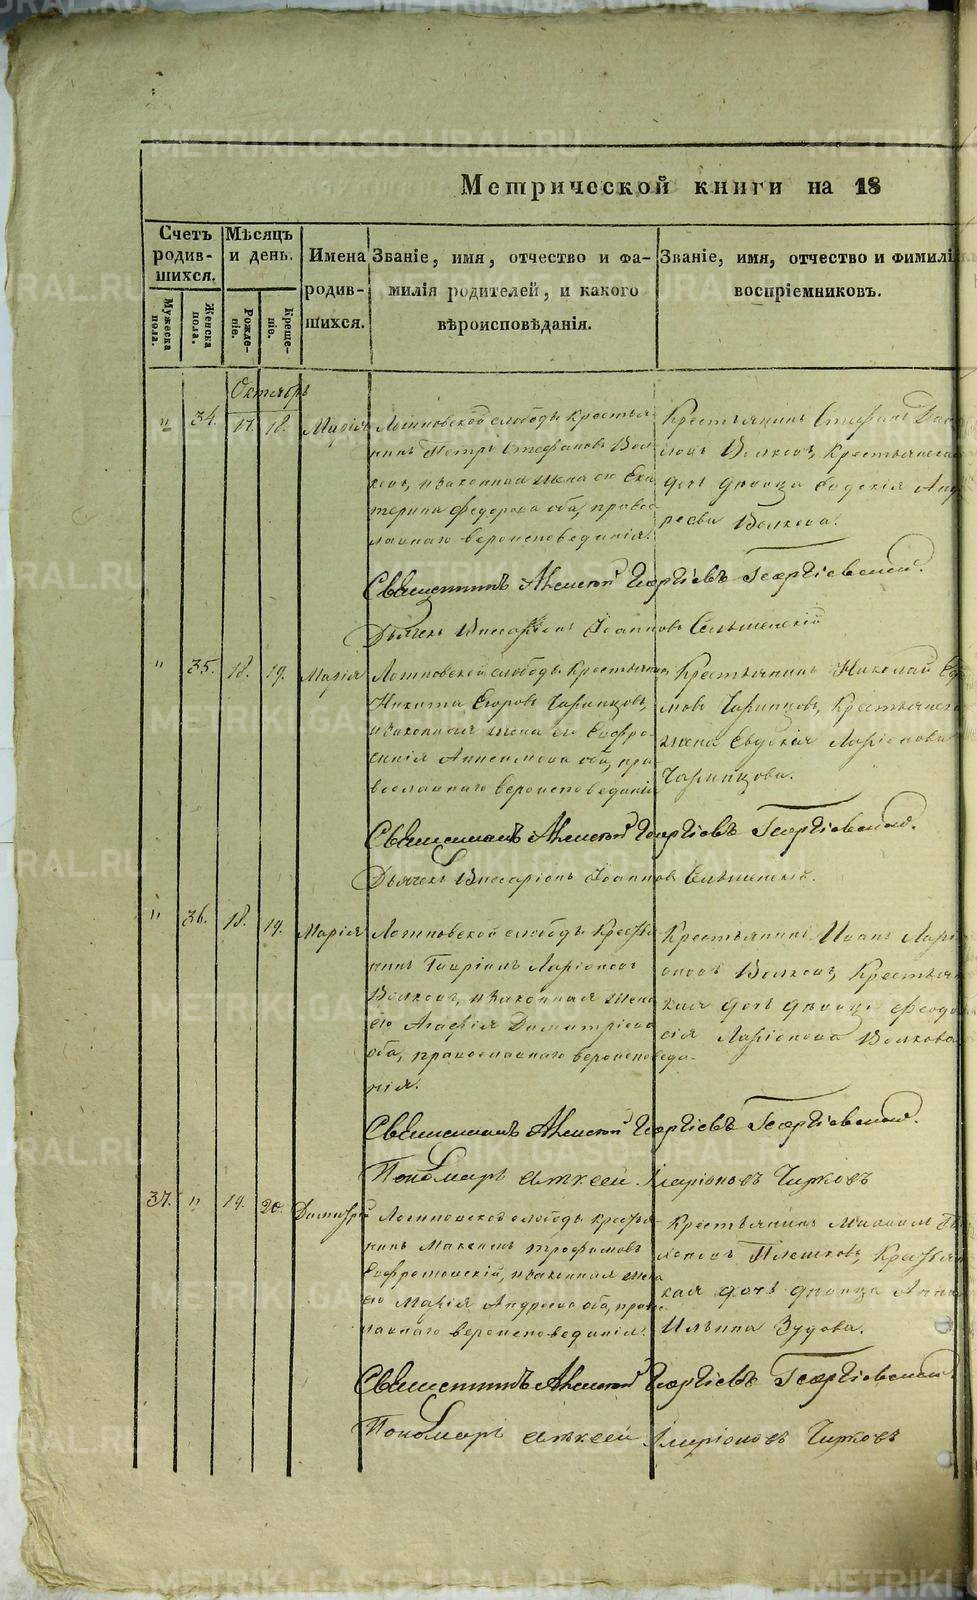 Метрической книги на 18
Счетъ родив-шихся.
Мужеска пола.
Женска пола.
Мѣсяцъ и день.
Рожде-ніе.
Креще-ніе.
Имена родив-шихся.
Званіе, имя, отчество и фа-
милія родителей, и какого
вѣроисповѣданія.
Званіе, имя, отчество и фимилі
воспріемниковъ.
Октябрь
" 34. 17. 18. Марія
Логиновской слободы крестья-
нинъ Петръ Стефановъ Вол-
ковъ, и законная жена его Ека
терина Федорова оба, правос
лавнаго вероисповеданія.
Крестьянинъ Стефанъ
Волковъ, Крестьянская
дочь девица Евдокія Анд
реева Волкова.
Священникъ Алексей Георгіевъ Георгіевский.
Дьячекъ Виссаріонъ Іоанновъ
" 35. 18. 19. Марія
Логиновской слободы Крестьянинъ
Никита Егоровъ Чарипцовъ,
и законная жена его Евфро-
синія Аннсимова оба, пра-
вославнаго вероисповеданія
Крестьянинъ Николай
мовъ Чарипцовъ, Крестьянск
жена Евдокія Ларіонова
Чарипцова.
Священникъ Алексей Георгіевъ Георгіевский.
Дьячекъ Виссаріонъ Іоанновъ
" 36. 18. 19. Марія
Логиновской слободы Кресть
нинъ Гавріилъ Ларіоновъ
Волковъ, и законная жена
его Агафія Димитріева
оба, православнаго вероисповеда-
нія.
Крестьянинъ Иванъ Ларі
оновъ Волковъ, Крестьян
кая дочь девица Феодо
сія Ларіонова Волкова
Священникъ Алексей Георгіевъ Георгіевский.
Пономарь Алексей Иларіоновъ Чирковъ
37. " 19. 20. Димитрій
Логиновской слободы крестья
нинъ Максимъ Трофимовъ
и законная жена
его Марія Андреева оба, право
лавнаго вероисповеданія.
Крестьянинъ Михаилъ
Плешковъ, Крестьян
кая дочь девица Анна
Ильина Зудова.
Священникъ Алексей Георгіевъ Георгіевский
Пономарь Алексей Иларіоновъ Чирковъ
METRIKI.GASO-URAL.RU